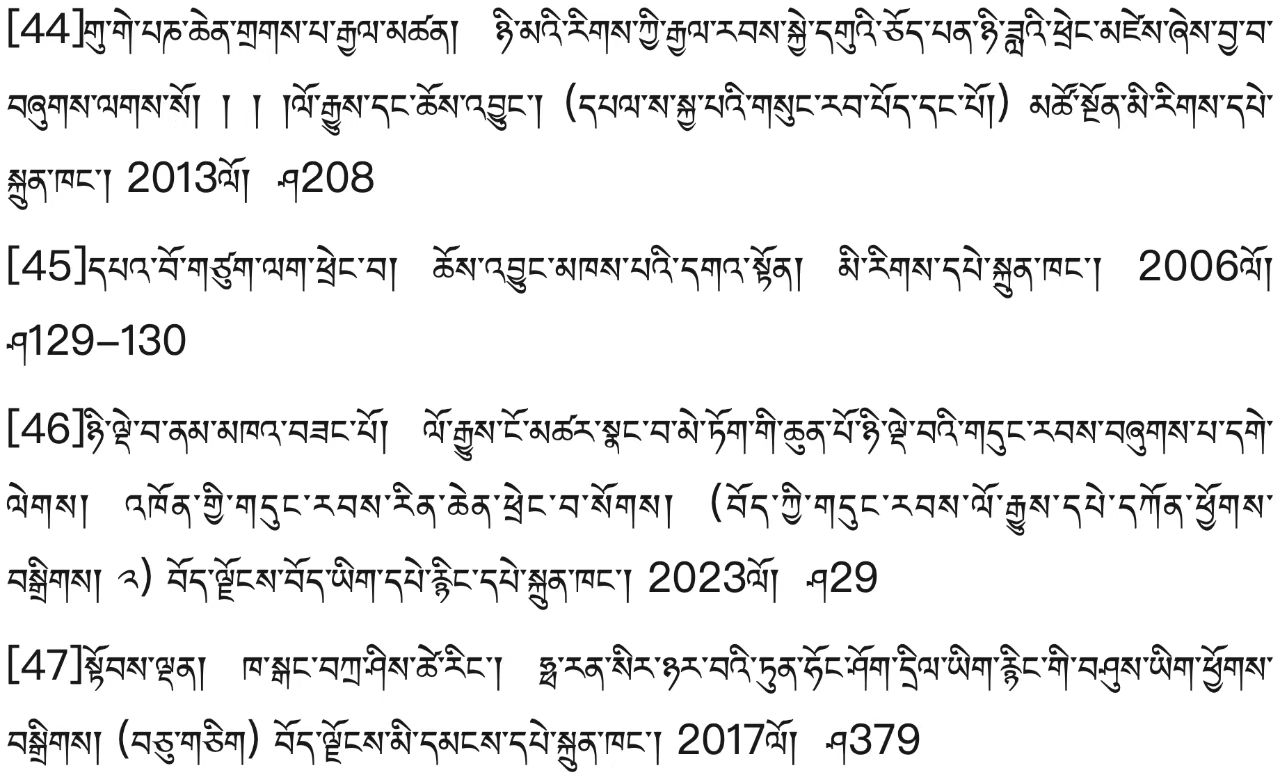 [44]གུ་གེ་པཎ་ཆེན་གྲགས་པ་རྒྱལ་མཚན། ཉི་མའི་རིགས་ཀྱི་རྒྱལ་རབས་སྐྱེ་དགུའི་ཅོད་པན་ཉི་ཟླའི་ཕྲེང་མཛེས་ཞེས་བྱ་བ་
བཞུགས་ལགས་སོ། ། ། །ལོ་རྒྱུས་དང་ཆོས་འབྱུང་། (དཔལ་ས་སྐྱ་པའི་གསུང་རབ་པོད་དང་པོ།) མཚོ་སྔོན་མི་རིགས་དཔེ་
སྐྲུན་ཁང་། 2013ལོ། ཤ208
[45]དཔའ་བོ་གཙུག་ལག་ཕྲེང་བ། ཆོས་འབྱུང་མཁས་པའི་དགའ་སྟོན། མི་རིགས་དཔེ་སྐྲུན་ཁང་། 2006ལོ།
ཤ129–130
[46]ཉི་ལྡེ་བ་ནམ་མཁའ་བཟང་པོ། ལོ་རྒྱུས་ངོ་མཚར་སྣང་བ་མེ་ཏོག་གི་ཆུན་པོ་ཉི་ལྡེ་བའི་གདུང་རབས་བཞུགས་པ་དགེ་
ལེགས། འཁོན་གྱི་གདུང་རབས་རིན་ཆེན་ཕྲེང་བ་སོགས། (བོད་ཀྱི་གདུང་རབས་ལོ་རྒྱུས་དཔེ་དཀོན་ཕྱོགས་
བསྒྲིགས། ༢) བོད་ལྗོངས་བོད་ཡིག་དཔེ་རྙིང་དཔེ་སྐྲུན་ཁང་། 2023ལོ། ཤ29
[47]སྟོབས་ལྡན། ཁ་སྒང་བཀྲ་ཤིས་ཚེ་རིང་། ཧྥ་རན་སིར་ཉར་བའི་ཏུན་ཧོང་ཤོག་དྲིལ་ཡིག་རྙིང་གི་བཤུས་ཡིག་ཕྱོགས་
བསྒྲིགས། (བཅུ་གཅིག) བོད་ལྗོངས་མི་དམངས་དཔེ་སྐྲུན་ཁང་། 2017ལོ། ཤ379